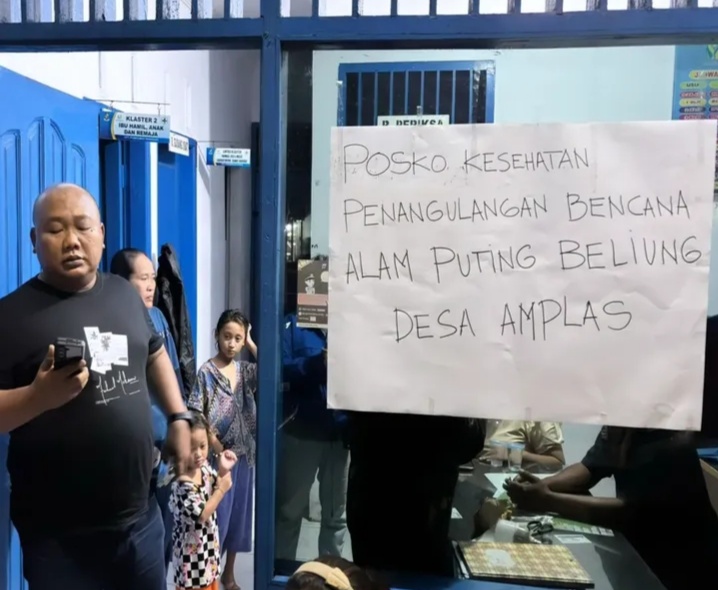 KLASTER 2
IBU HAMIL, ANAK
DAN REMAJA
R. PERIKSA
POSKO KESEHATAN
PENANGULANGAN BENCANA
ALAM PUTING BELIUNG
DESA AMPLAS